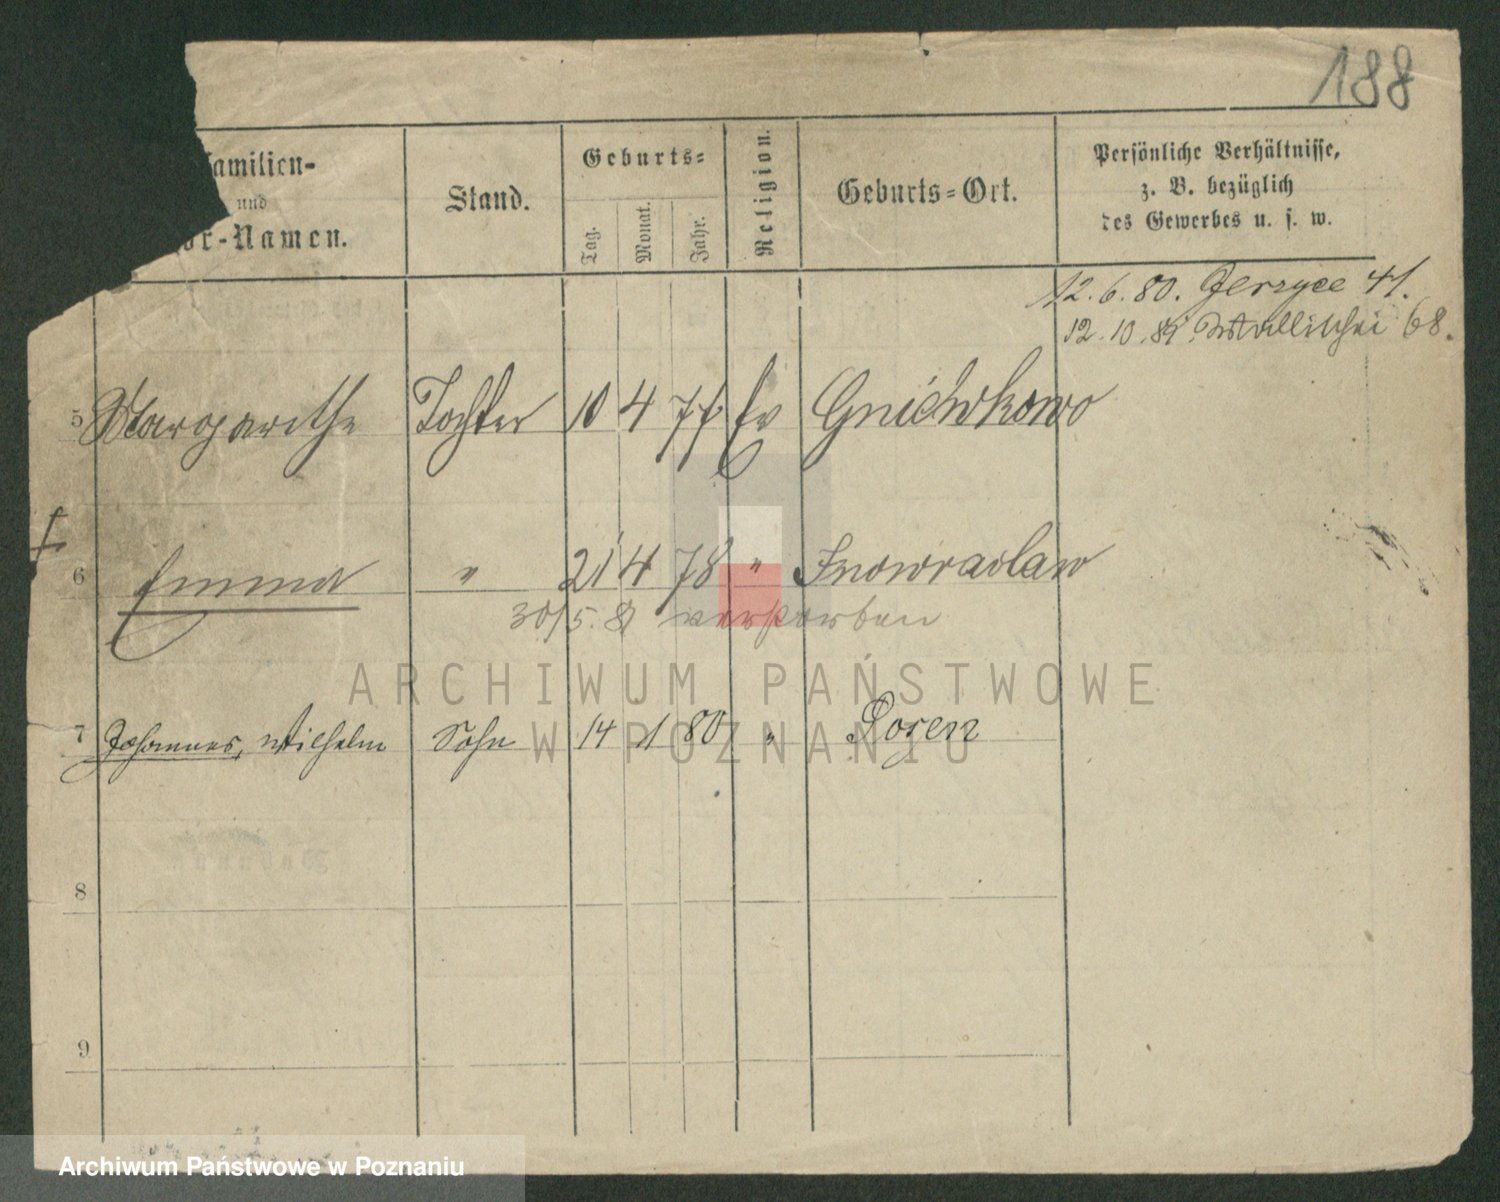 188
Familien-
und
Vor-Namen.
Stand.
Geburts-
Tag.
Monat.
Jahr.
Religion.
Geburts-Ort.
Persönliche Verhältnisse,
z. B. bezüglich
des Gewerbes u. s. w.
12.6.80. Jerzyce 41.
12.10.81 Wallischei 68.
5 Margarethe Tochter 10 4 77 Ev Gniewkowo
6 Emma " 21 4 78 " Inowraclaw
30/5.81 verstorben
7 Johannes, Wilhelm Sohn 14 1 80 " Posen
8
9
ARCHIWUM PAŃSTWOWE
W POZNANIU
Archiwum Państwowe w Poznaniu